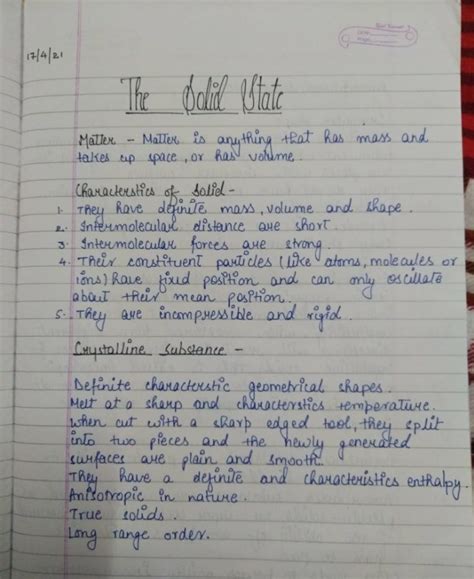 17/4/21
The Solid State
Matter - Matter is anything that has mass and
takes up space, or has volume.
Characterstics of Solid -
1. They have definite mass, volume and shape.
2. Intermolecular distance are short.
3. Intermolecular forces are strong.
4. Their constituent particles (like atoms, molecules or
ions) have fixed position and can only oscillate
about their mean position.
5. They are incompressible and rigid.
Crystalline Substance -
Definite characterstic geometrical shapes.
Melt at a sharp and characterstics temperature.
When cut with a sharp edged tool, they split
into two pieces and the newly generated
surfaces are plain and smooth.
They have a definite and characteristics enthalpy.
Anisotropic in nature.
True solids.
Long range order.